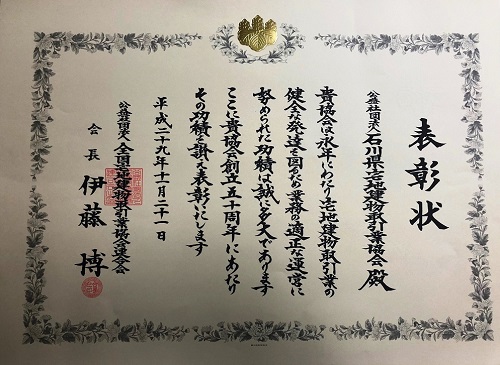 表彰状
公益社団法人 石川県宅地建物取引業協会 殿
貴協会は永年にわたり宅地建物取引業の
健全な発達を図るため業務の適正な運営に
努められた功績は誠に多大であります
ここに貴協会創立五十周年にあたり
その功績を讃え表彰いたします
平成二十九年十一月二十一日
公益社団法人 全国宅地建物取引業協会連合会
会長 伊藤 博